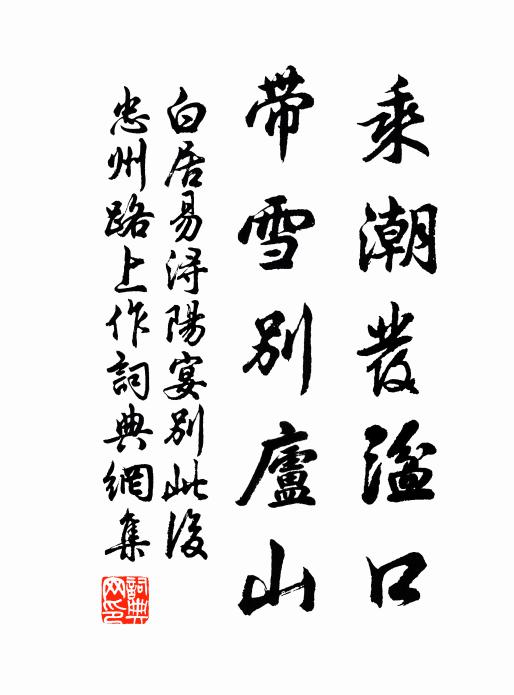 乘潮發湓口
帶雪別廬山
白居易潯陽宴別此後
忠州路上作詞典網集
詞典网印